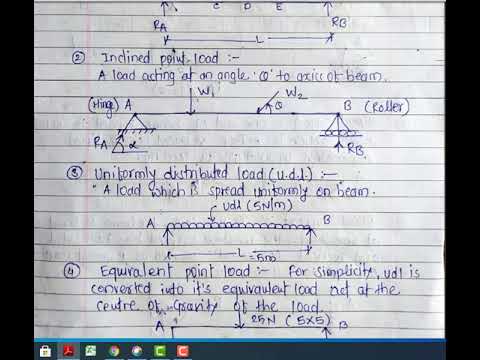 RA C D E RB
L
② Inclined point load :-
A load acting at an angle 'θ' to axis of beam.
W1 W2
(Hinge) A θ B (Roller)
RA α RB
③ Uniformly distributed load (u.d.l.) :-
"A load which is spread uniformly on beam.
udl (5N/m)
A B
L = 5m
④ Equivalent point load :- for simplicity, udl is
converted into it's equivalent load at the
centre of gravity of the load.
25N (5x5)
A B